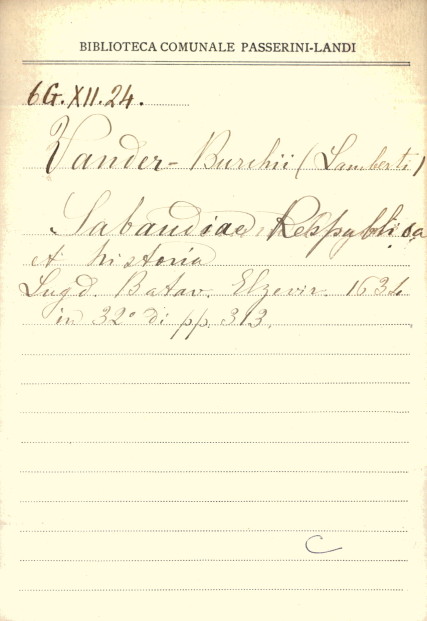 BIBLIOTECA COMUNALE PASSERINI-LANDI
6G.XII.24.
Vander-Burchii (Lamberti)
Sabaudiae Respublica
et historia
Lugd. Batav. Elzevir. 1634
in 32° di pp. 313.
C